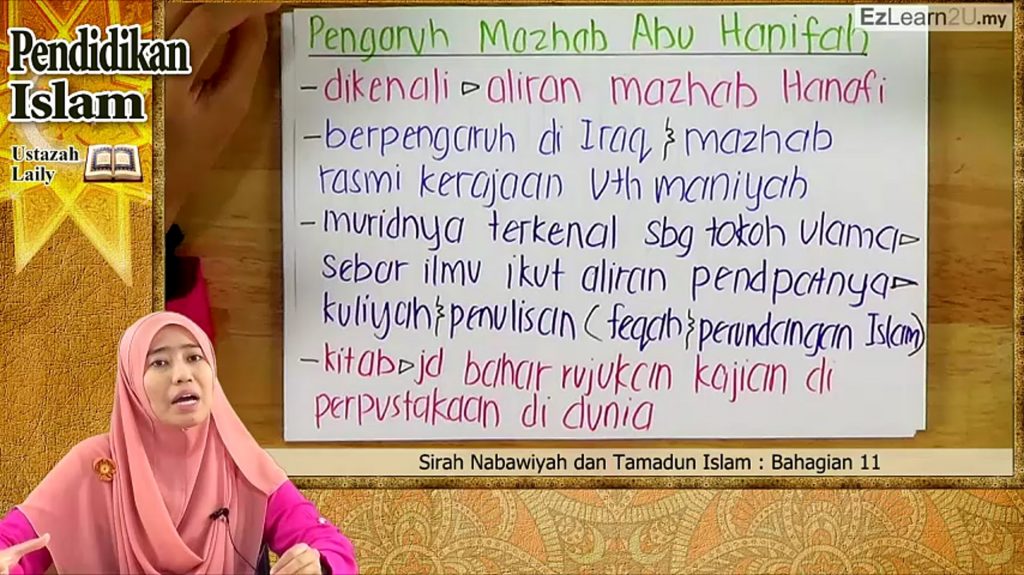 EzLearn2U.my
Pendidikan
Islam
Ustazah
Laily
Pengaruh Mazhab Abu Hanifah
- dikenali ▷ aliran mazhab Hanafi
- berpengaruh di Iraq & mazhab
rasmi kerajaan Uthmaniyah
- muridnya terkenal sbg tokoh ulama ▷
sebar ilmu ikut aliran pendpatnya ▷
kuliyah & penulisan (feqah & perundangan Islam)
- kitab ▷ jd bahar rujukan kajian di
perpustakaan di dunia
Sirah Nabawiyah dan Tamadun Islam : Bahagian 11